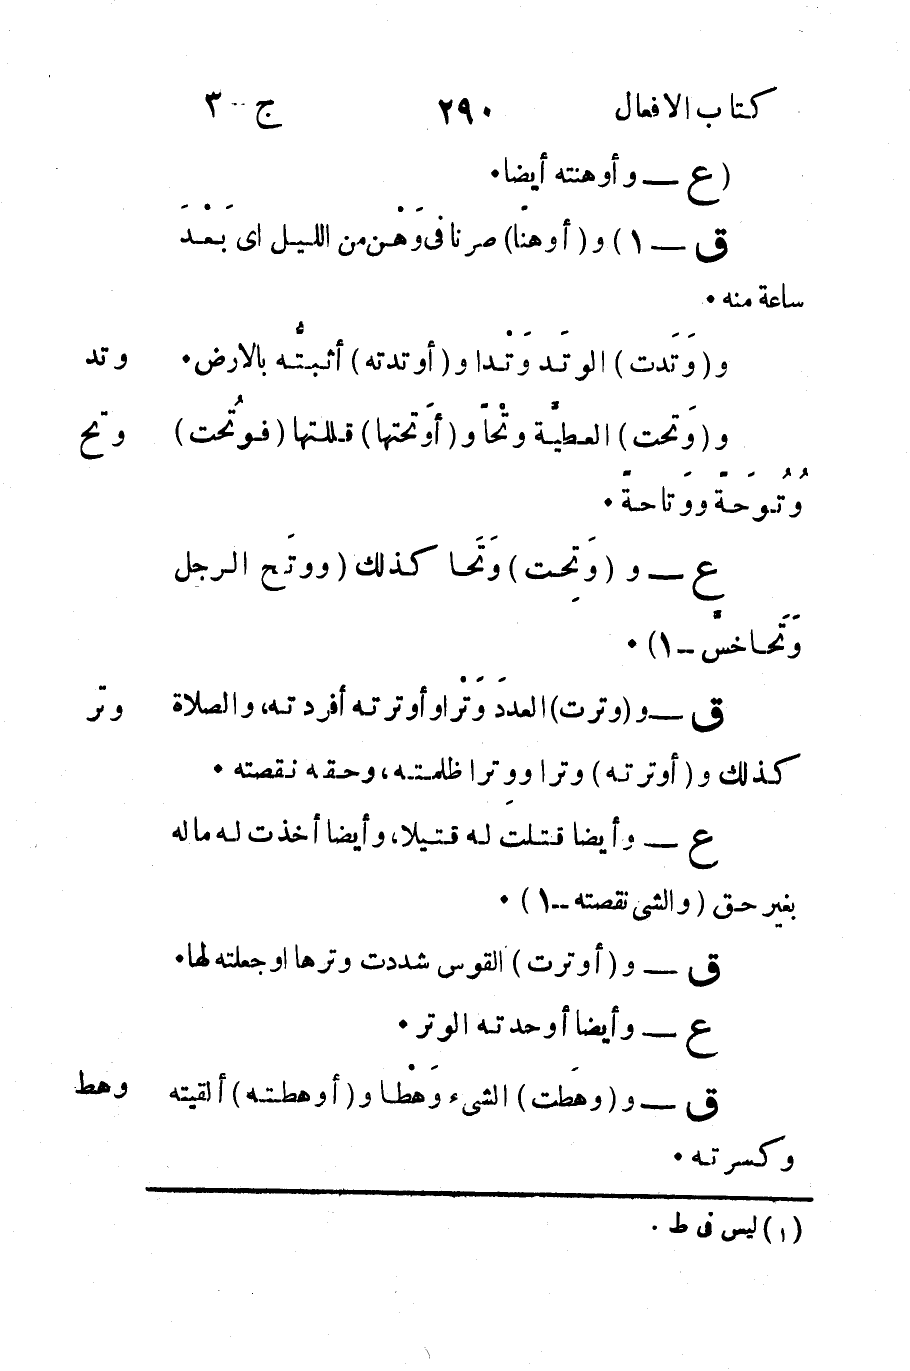 كتاب الافعال ٢٩٠ ج -- ٣
(ع — و أوهنته أيضا٠
ق — ١) و (أوهنّا) صرنا فى وَهْن من الليل اى بَعْدَ
ساعة منه ٠
و (وَتَدت) الوتَد وَتْدا و (أوتدته) أثبتُّه بالارض٠ وتد
و (وَتحت) العطيّة وتْحاً و (أوَتحتها) قللتها (فوُتُحت) وتح
وُتُوحَةً ووَتاحةً ٠
ع — و (وَتِحت) وَتَحا كذلك (ووتَح الرجل
وَتَحا خسّ — ١) ٠
ق — و (وترت) العدَدَ وَتْرا وأوترته أفردته، والصلاة وتر
كذلك و (أوترته) وترا ووِترا ظلمته، وحقه نقصته ٠
ع — وأيضا قتلت له قتيلا، وأيضا أخذت له ماله
بغير حق (والشى نقصته — ١) ٠
ق — و (أوترت) القوس شددت وترها اوجعلته لها٠
ع — وأيضا أوحدته الوتر ٠
ق — و (وهَطت) الشىء وَهْطا و (أوهطته) ألقيته وهط
وكسرته ٠
(١) ليس فى ط ٠